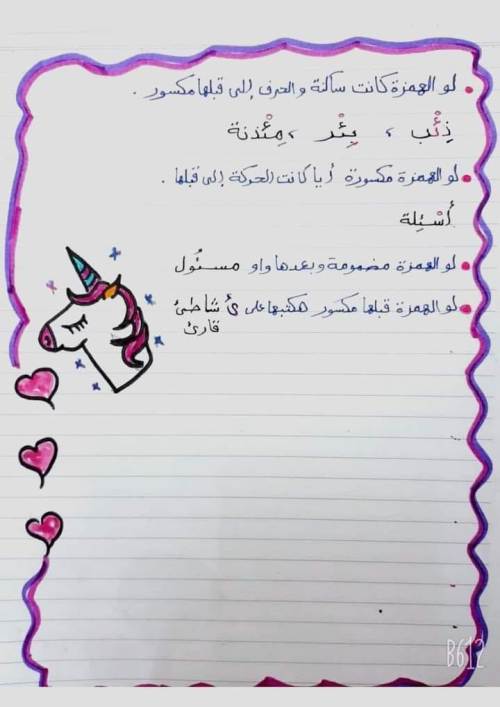 لو الهمزة كانت ساكنة والحرف إللى قبلها مكسور .
ذِئْب ، بِئْر ، مِئْذنة
لو الهمزة مكسورة أياً كانت الحركة إللى قبلها .
أَسْئِلة
لو الهمزة مضمومة وبعدها واو مسئُول
لو الهمزة قبلها مكسور هكتبها على ئ شاطئ
قارئ
B612